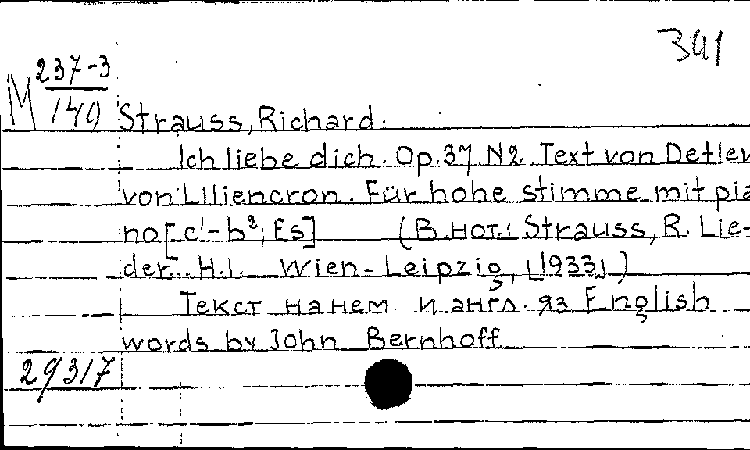 341
М 237-3
140
Strauss, Richard.
Ich liebe dich. Op.37 N2. Text von Detlev
von Liliencron. Für hohe stimme mit pia
no[c¹-b²; Es] (В нот.: Strauss, R. Lie-
der. H.1. Wien-Leipzig, [1933].)
Текст на нем и англ. яз English
words by John Bernhoff
29317